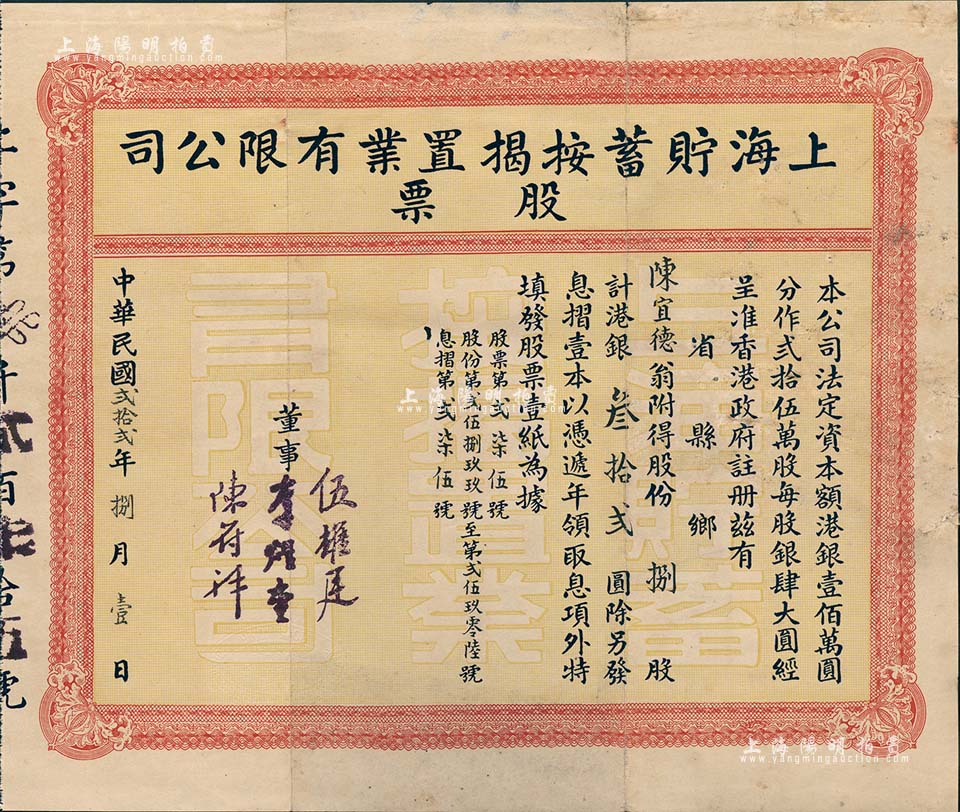 上海陽明拍賣
www.yangmingauction.com
上海陽明拍賣
www.yangmingauction.com
上海貯蓄按揭置業有限公司
股票
本公司法定資本額港銀壹佰萬圓
分作貳拾伍萬股每股銀肆大圓經
呈准香港政府註册玆有
省 縣 鄉
陳宜德翁附得股份 捌 股
計港銀 叁拾弍 圓除另發
息摺壹本以憑遞年領取息項外特
填發股票壹紙為據
股票第弍柒伍號
股份第弍伍捌玖玖號至第弍伍玖零陸號
息摺第弍柒伍號
董事
伍
陳符祥
中華民國弍拾弍年 捌 月 壹 日
字第
貳百柒拾伍號
上海貯蓄
按揭置業
有限公司
上海陽明拍賣
www.yangmingauction.com
上海陽明拍賣
www.yangmingauction.com